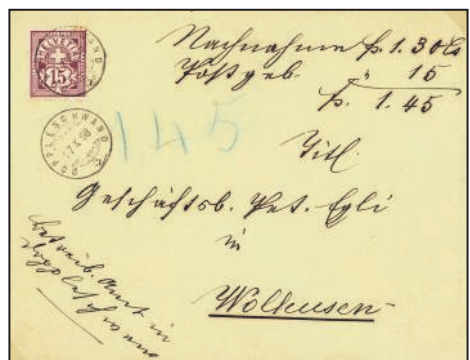 HELVETIA
15
DOPPLESCHWAND
Nachnahme fr. 1.30 Cts
Postgeb. " 15
fr. 1.45
145
Titl.
Geschäftsb. Pet. Egli
in
Wolhusen
Betreib. Amt in
Dopplschwand